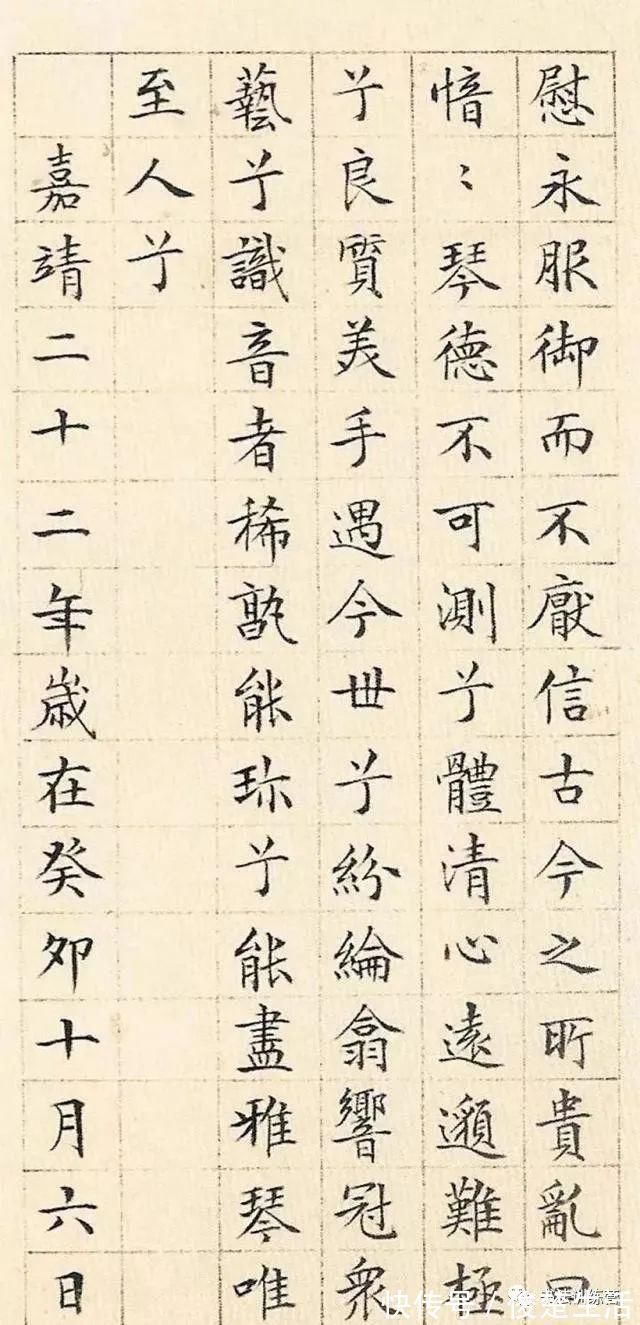 慰永服御而不厭信古今之所貴亂曰
愔〻琴德不可測兮體清心遠邈難極
兮良質美手遇今世兮紛綸翕響冠衆
藝兮識音者稀孰能珎兮能盡雅琴唯
至人兮
嘉靖二十二年歲在癸夘十月六日
快传号/俊楚生活